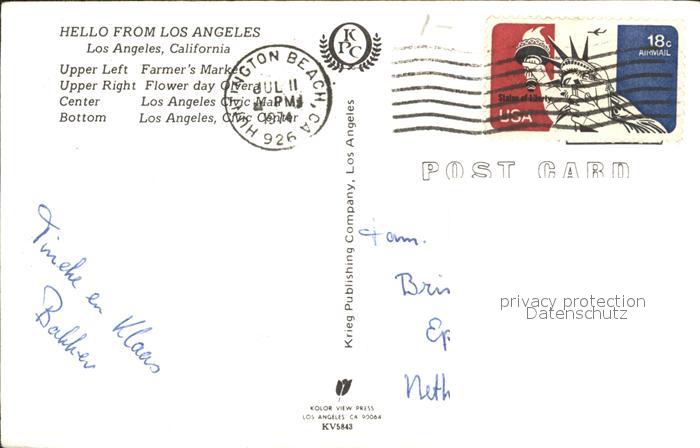 HELLO FROM LOS ANGELES
Los Angeles, California
Upper Left Farmer's Market
Upper Right Flower day Olvera
Center Los Angeles Civic Mall
Bottom Los Angeles, Civic Center
KPC
HUNTINGTON BEACH, CA
JUL 11
PM
1974
926
18c
AIRMAIL
Statue of Liberty
USA
POST CARD
Krieg Publishing Company, Los Angeles
Tineke en Klaas
Bakker
Fam.
Bri
Ep
Neth
privacy protection
Datenschutz
KOLOR VIEW PRESS
LOS ANGELES CA 90064
KV5843